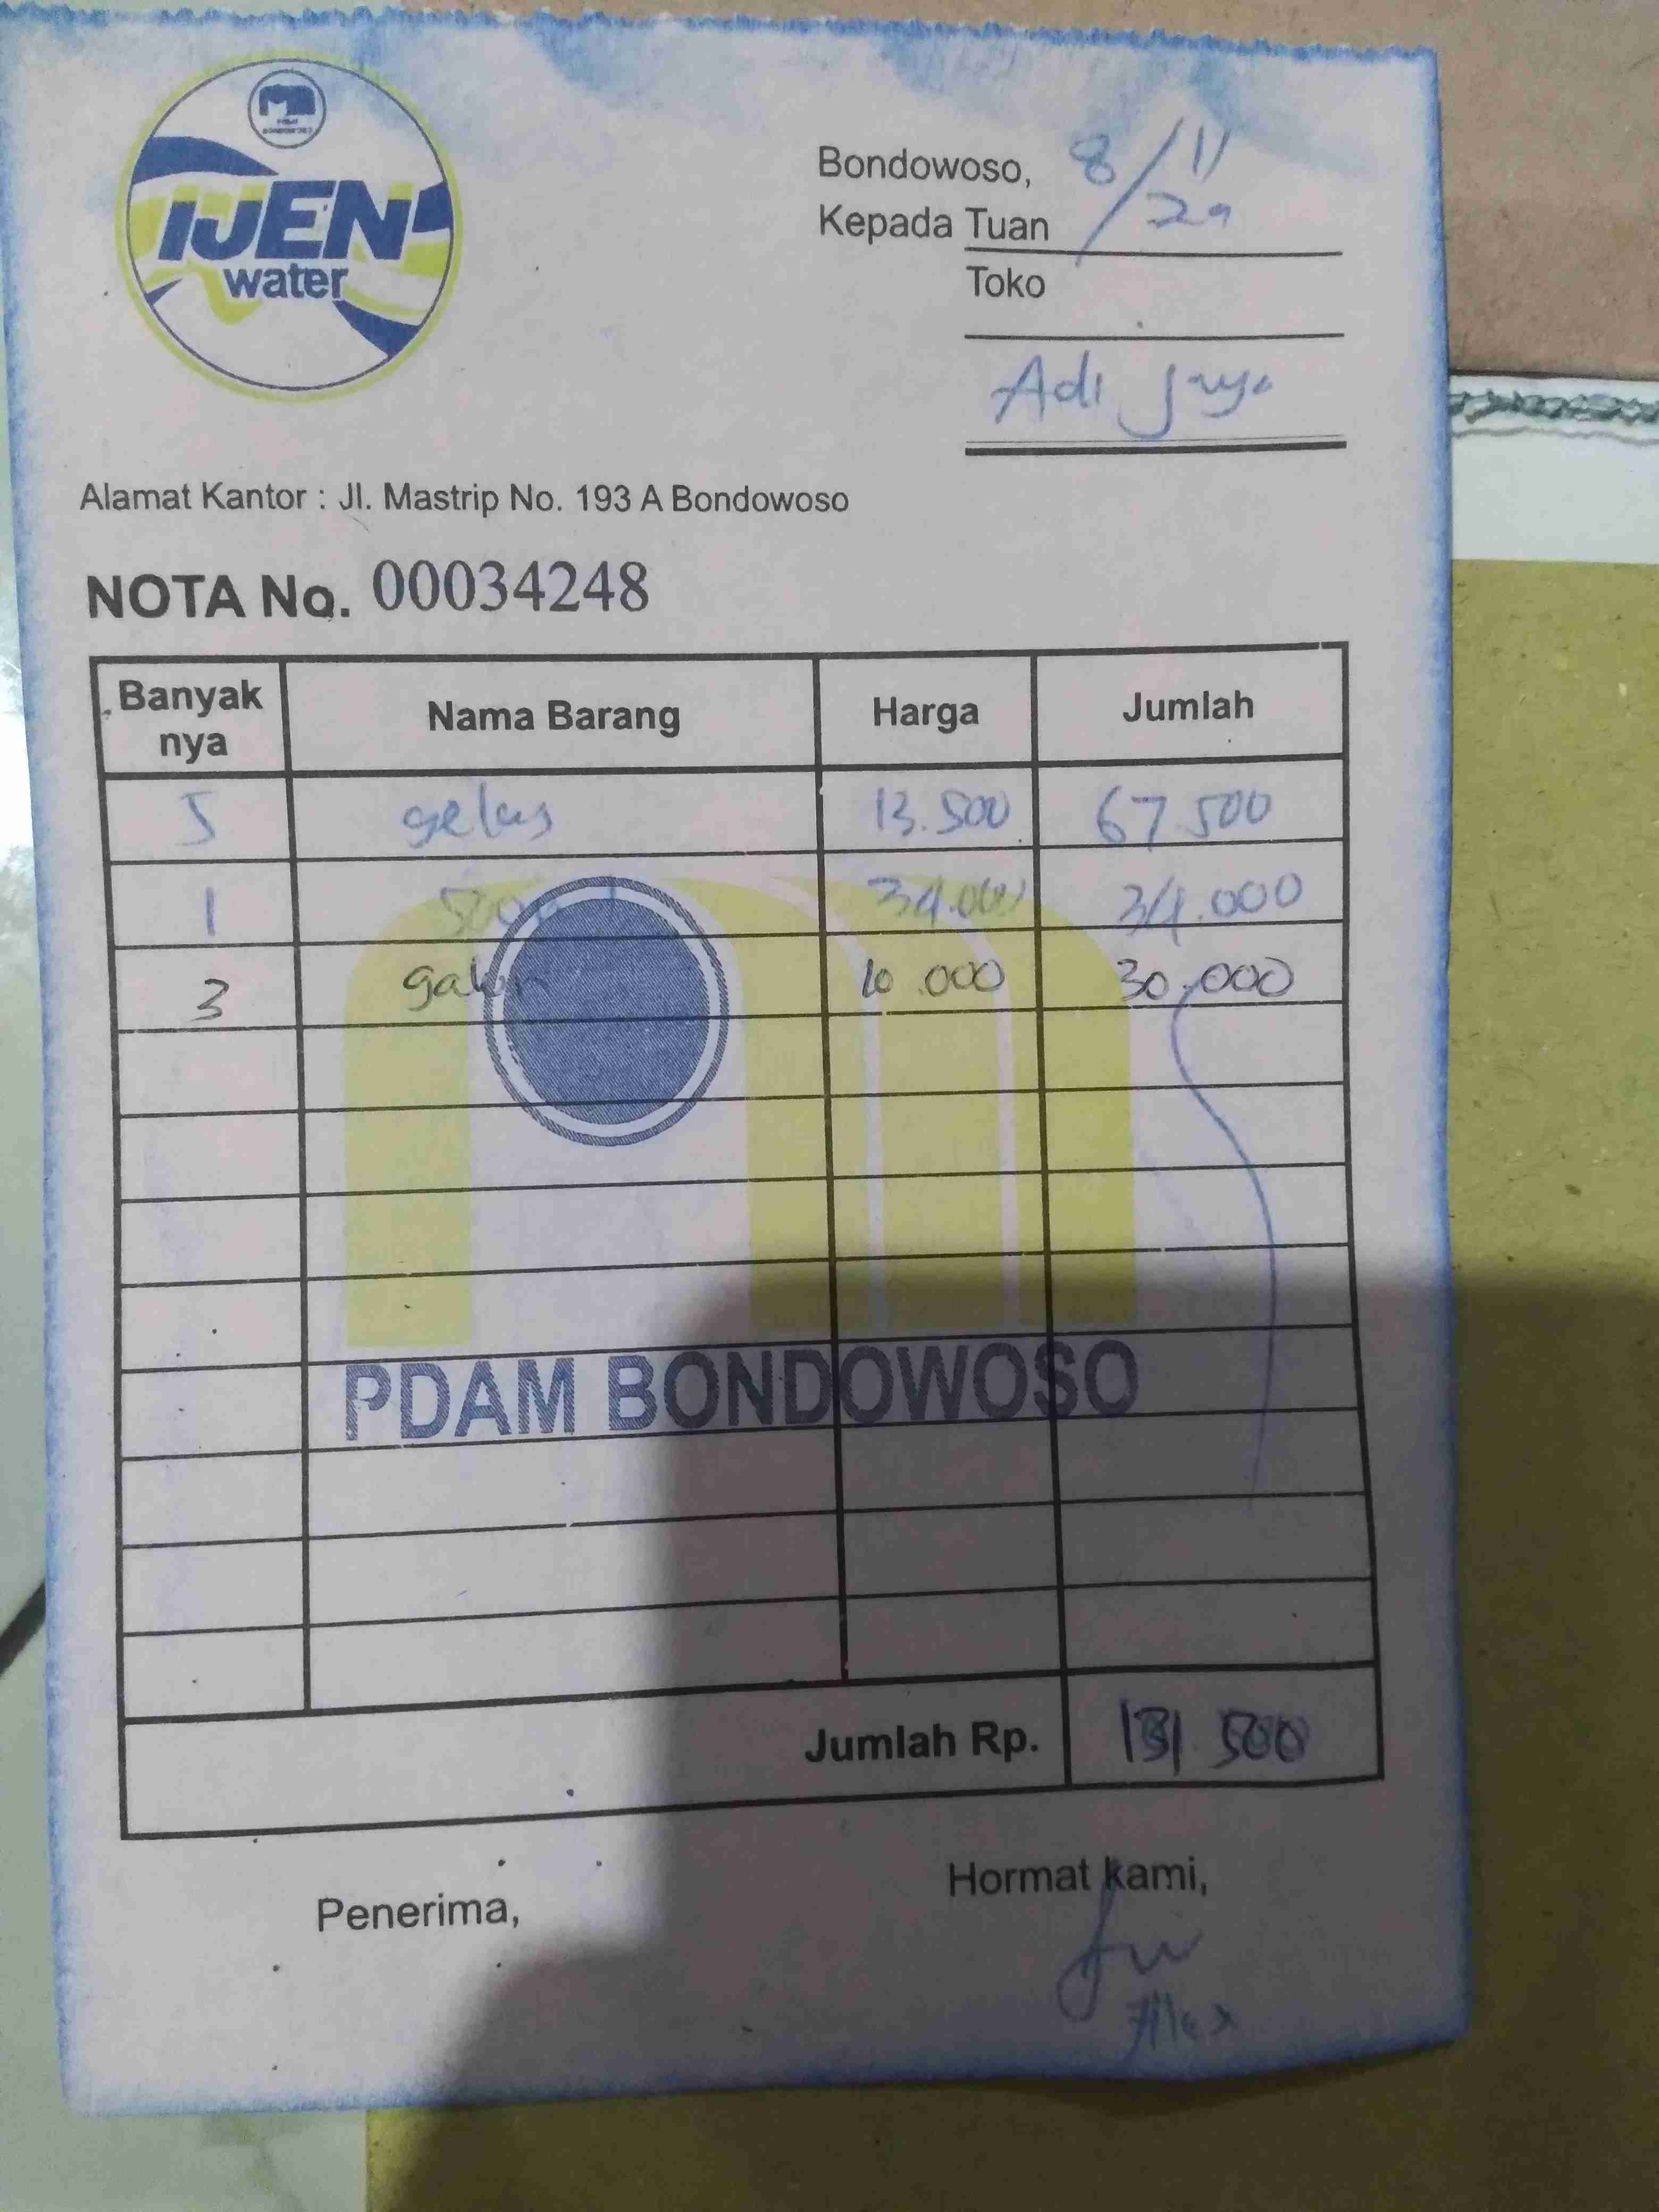 IJEN
water
Bondowoso, 8/11
Kepada Tuan
Toko
Adi Jaya
Alamat Kantor : Jl. Mastrip No. 193 A Bondowoso
NOTA No. 00034248
Banyak nya Nama Barang Harga Jumlah
5 gelas 13.500 67.500
1 34.000 34.000
3 galon 10.000 30.000
PDAM BONDOWOSO
Jumlah Rp. 131.500
Penerima,
Hormat kami,